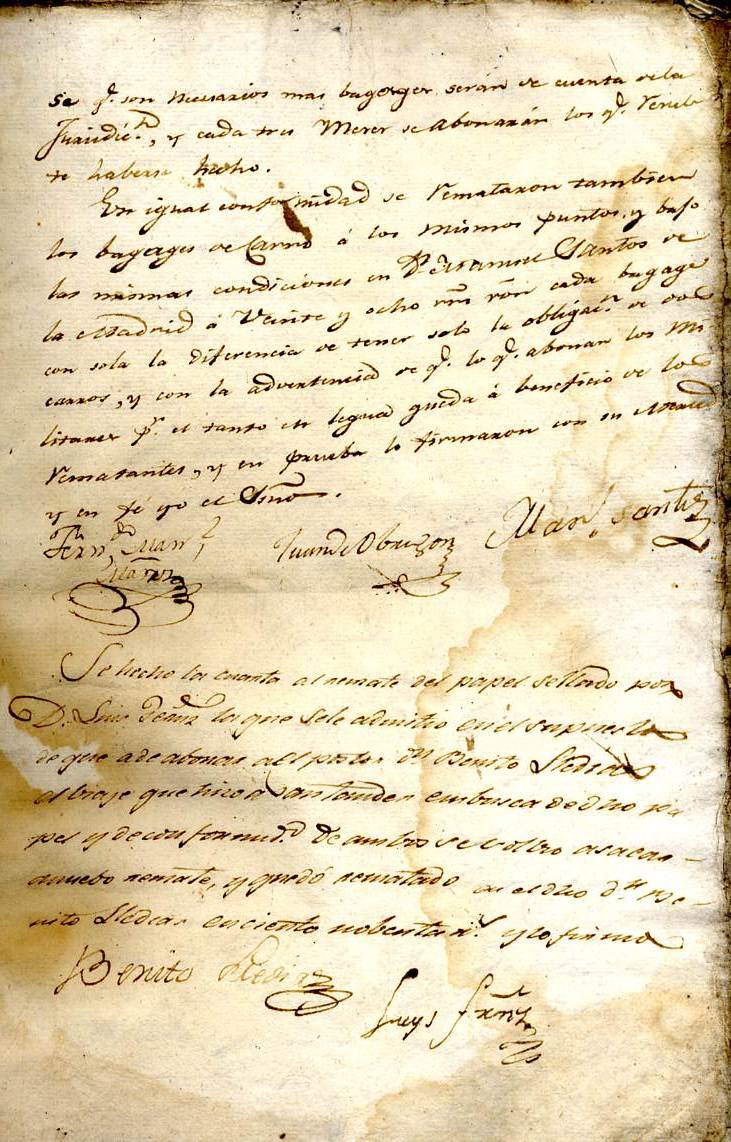 se q.e son necesarios mas bagages serán de cuenta de la
Jurisdic.n, y cada tres Meses se abonarán los q.e
te haberse hecho.
En igual conformidad se remataron tambien
los bagages de Carro á los mismos puntos, y bajo
las mismas condiciones en D.n Manuel Santos de
la Madrid á veinte y ocho rr.s v.on cada bagage
con sola la diferencia de tener solo la obligac.n de dos
carros, y con la advertencia de q.e lo q.e abonan los Mi
litares p.r el tanto en legua queda á beneficio de los
rematantes, y en prueba lo firmaron con su Merced
y en fé yo el Ssno.
Fern.do Man.l Juan de Obregon Man.l Santos
Se hecho la cuarta al remate del papel sellado por
D. Luis Fernz la que sele admitio en el supuesto
de que a de abonar a el postor D.n Benito Lledias
el biaje que hizo a Santander en busca de dho pa
pel y de conformid.d de ambos se volbio a sacar
a nuebo remate, y quedó rematado en el dho d.n Be-
nito Lledias en ciento nobenta r.s y lo firmo
Benito Lledias
Luys Frnz